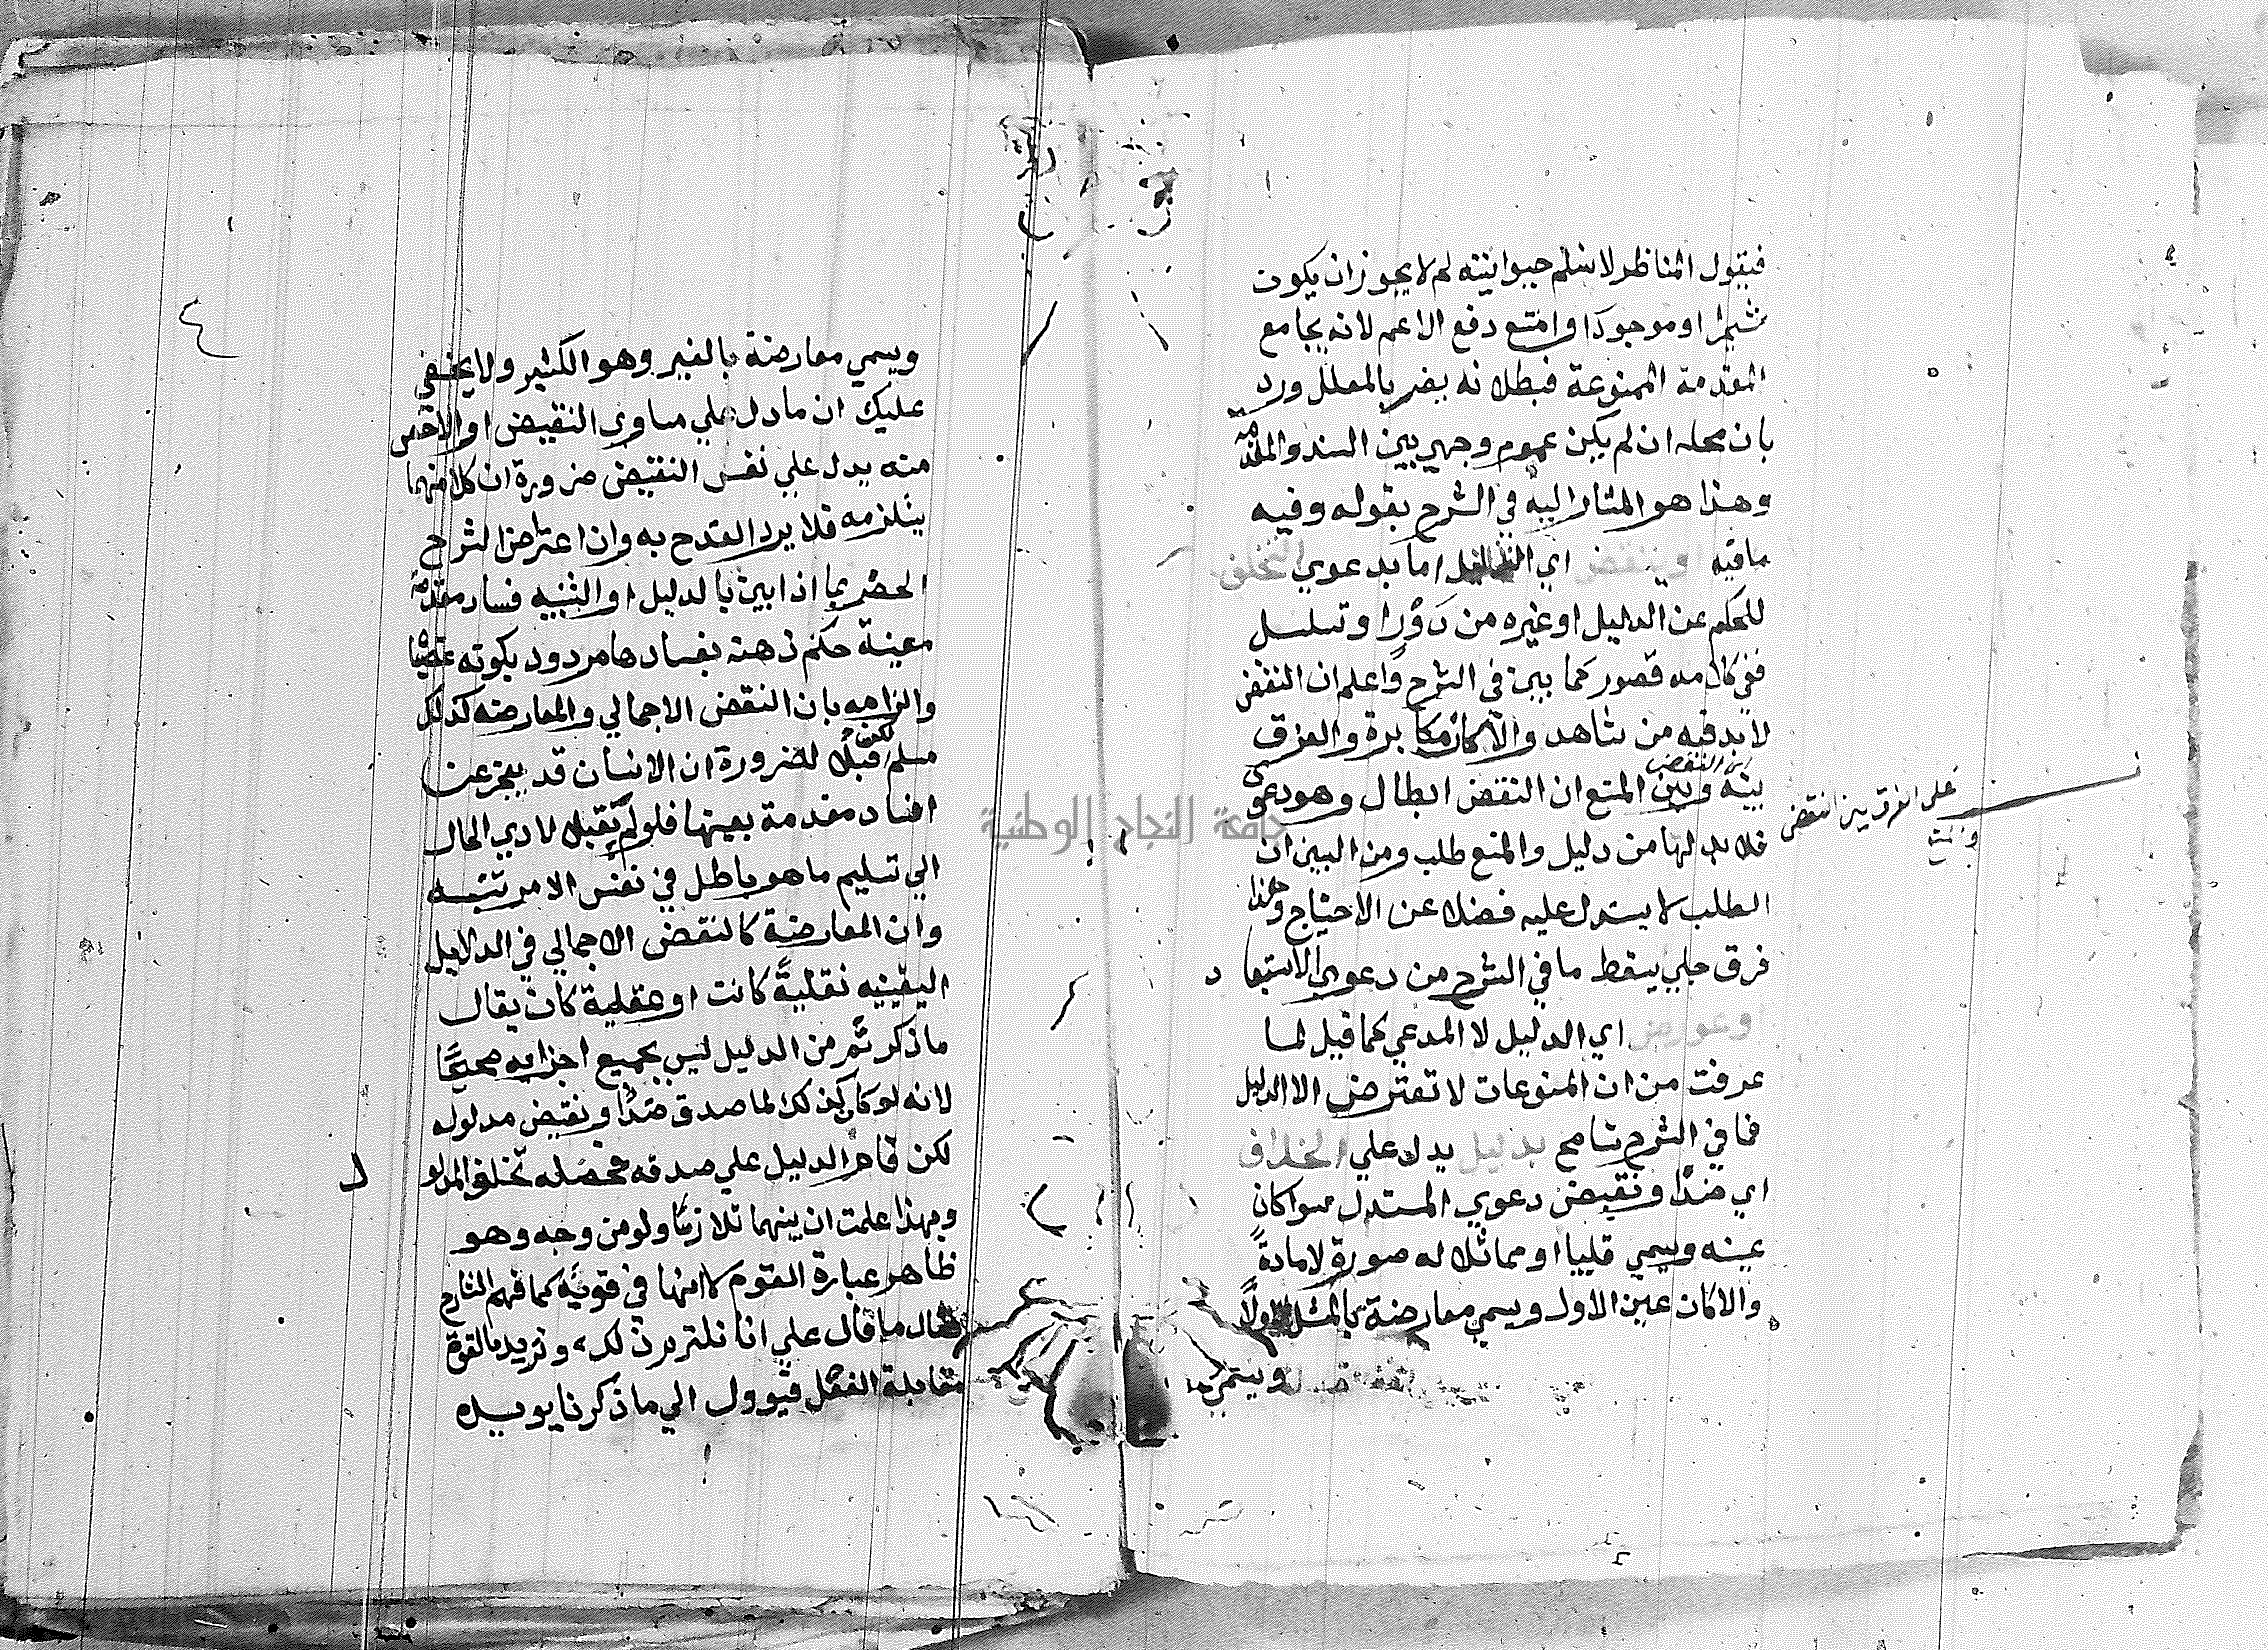 فيقول المناظر لا نسلم حيوانيته لم لا يجوز ان يكون
او موجودا وامتنع دفع الاعم لانه يجامع
المقدمة الممنوعة فبطلانه يضر بالمعلل ورد
بان محله ان لم يكن عموم وجهي بين السند والمقدمة
وهذا هو المشار اليه في الشرح بقوله وفيه
ما فيه او ينقض اي الدليل اما بدعوي التخلف
للحكم عن الدليل او غيره من دور او تسلسل
ففي كلامه قصور كما بين في الشرح واعلم ان النقض
لا بد فيه من شاهد والا كان مكابرة والفرق
بينه وبين المنع ان النقض ابطال وهو دعوى
اي النقض
فلا بد لها من دليل والمنع طلب ومن البين ان
على الفرق بين النقض
والمنع
الطلب لا يستدل عليه فضلا عن الاحتياج وهذا
فرق جلي يسقط ما في الشرح من دعوي الاستبعاد
او عورض اي الدليل لا المدعي كما قيل لما
عرفت من ان الممنوعات لا تعترض الا الدليل
فما في الشرح تسامح بدليل يدل علي الخلاف
اي ضد او نقيض دعوي المستدل سوا كان
عينه ويسمي قلبيا او مماثلا له صورة لا مادة
والا كان عين الاول ويسمي معارضة بالمثل اولا
ويسمي
٤
ويسمي معارضة بالغير وهو الكثير ولا يخفي
عليك ان ما دل علي مساوي النقيض او الاخص
منه يدل علي نفس النقيض ضرورة ان كلا منهما
يستلزمه فلا يرد القدح به وان اعتراض الشرح
الحصر بما اذا بين بالدليل او التنبيه فساد مقدمة
معينة حكم ذهنه بفسادها مردود بكونه غصبا
والزامه بان النقض الاجمالي والمعارضة كذلك
مسلم لكن قبلا للضرورة ان الانسان قد يعجز عن
افساد مقدمة بعينها فلو لم تقبل لادي الحال
الي تسليم ما هو باطل في نفس الامر تنبيه
وان المعارضة كالنقض الاجمالي في الدلايل
اليقينيه نقلية كانت او عقلية كان يقال
ما ذكر ثم من الدليل ليس بجميع اجزايه صحيحا
لانه لو كان كذلك لما صدق ضد او نقيض مدلوله
لكن قام الدليل علي صدقه فمحصله تخلف المدلول
وبهذا علمت ان بينهما تلازما ولو من وجه وهو
ظاهر عبارة القوم لا انها في قوته كما فهم الشارح
فقال ما قال علي انا نلتزم ذلك ونريد بالقوة
مقابلة الفعل فيوول الي ما ذكرنا يويده